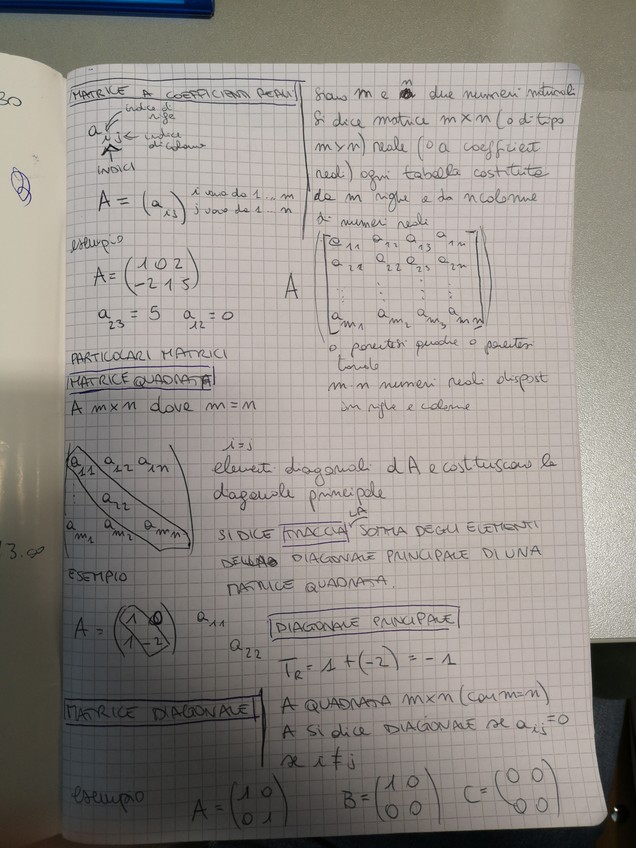 30
MATRICE A COEFFICIENTI REALI
indice di
riga
a i j ← indice
di colonna
INDICI
A = (a ij) i va da 1 ... m
j va da 1 ... n
Siano m e n due numeri naturali
Si dice matrice m×n (o di tipo
m×n) reale (o a coefficienti
reali) ogni tabella costituita
da m righe e da n colonne
di numeri reali
A
a11 a12 a13 a1n
a21 a22 a23 a2n
⋮ ⋮ ⋮ ⋮
am1 am2 am3 amn
o parentesi quadre o parentesi
tonde
m·n numeri reali disposti
in righe e colonne
esempio
A = (1 0 2
-2 1 5)
a23 = 5 a12 = 0
PARTICOLARI MATRICI
MATRICE QUADRATA
A m×n dove m = n
a11 a12 a1n
⋮ a22
am1 am2 amn
i = j
elementi diagonali di A e costituiscono la
diagonale principale
SI DICE TRACCIA LA SOMMA DEGLI ELEMENTI
DELLA DIAGONALE PRINCIPALE DI UNA
MATRICE QUADRATA.
13.00
ESEMPIO
A = (1 0
1 -2)
a11
a22
DIAGONALE PRINCIPALE
TR = 1 + (-2) = -1
MATRICE DIAGONALE
A QUADRATA m×n (con m=n)
A SI DICE DIAGONALE se aij = 0
se i ≠ j
esempio
A = (1 0
0 1)
B = (1 0
0 0)
C = (0 0
0 0)